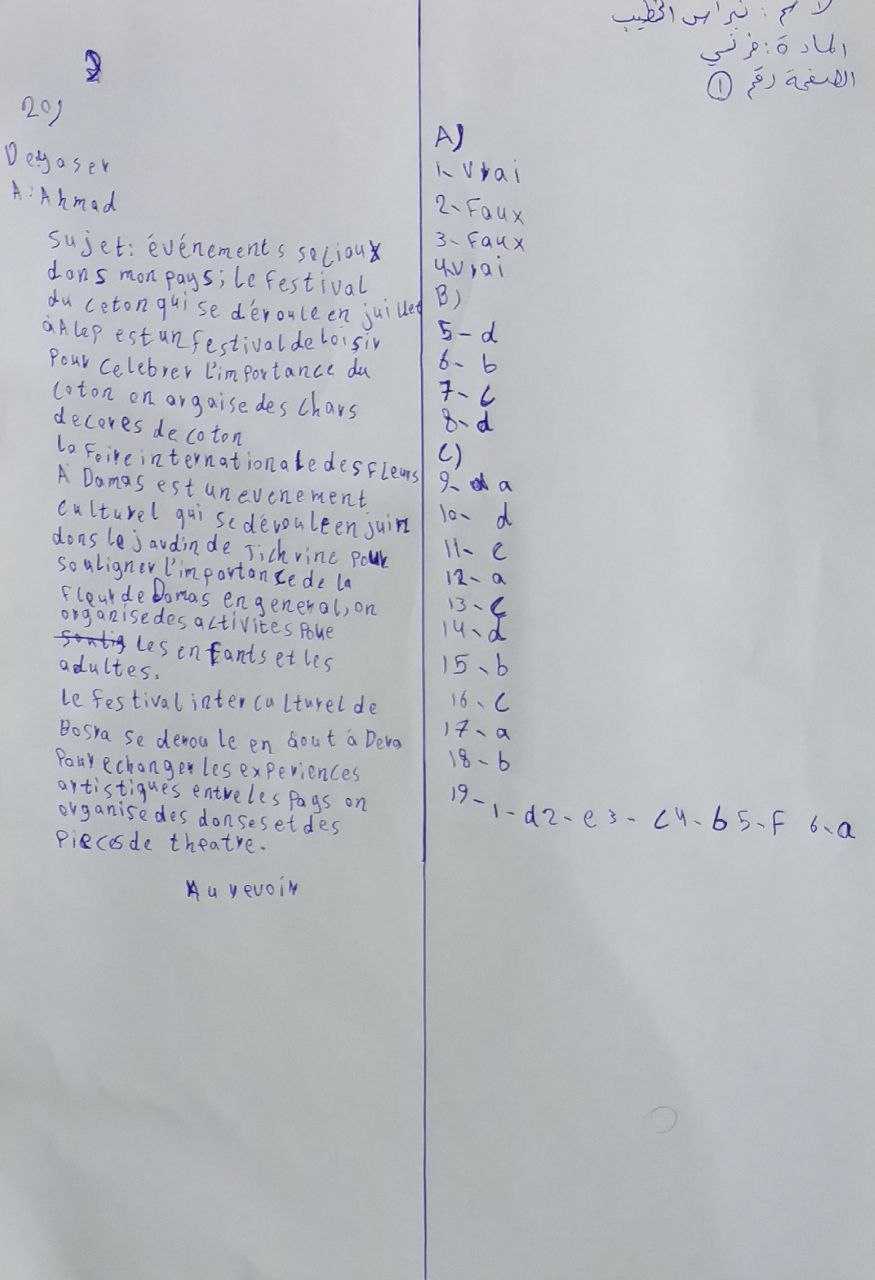 لاسم : نبراس الخطيب
المادة : فرنسي
الصفحة رقم ①
A)
1- Vrai
2- Faux
3- Faux
4. Vrai
B)
5- d
6- b
7- c
8- d
C)
9- a
10- d
11- c
12- a
13- c
14- d
15- b
16- c
17- a
18- b
19- 1- d 2- e 3- c 4- b 5- F 6- a
2
20)
De yaser
A: Ahmad
Sujet: événements sociaux
dans mon pays; le Festival
du ceton qui se déroule en juillet
à Alep est un festival de loisir
Pour celebrer l'importance du
coton on argaise des chars
decores de coton
La Foire internationale des Fleurs
A Damas est un evenement
culturel qui se déroule en juin
dons le jardin de Tichrine pour
souligner l'importance de la
Fleur de Damas en general, on
organise des activites Poue
les enfants et les
adultes.
Le Festival inter culturel de
Bosra se deroule en aout à Dera
Pour echanger les experiences
artistiques entre les pays on
organise des donses et des
pieces de theatre.
Au revoir